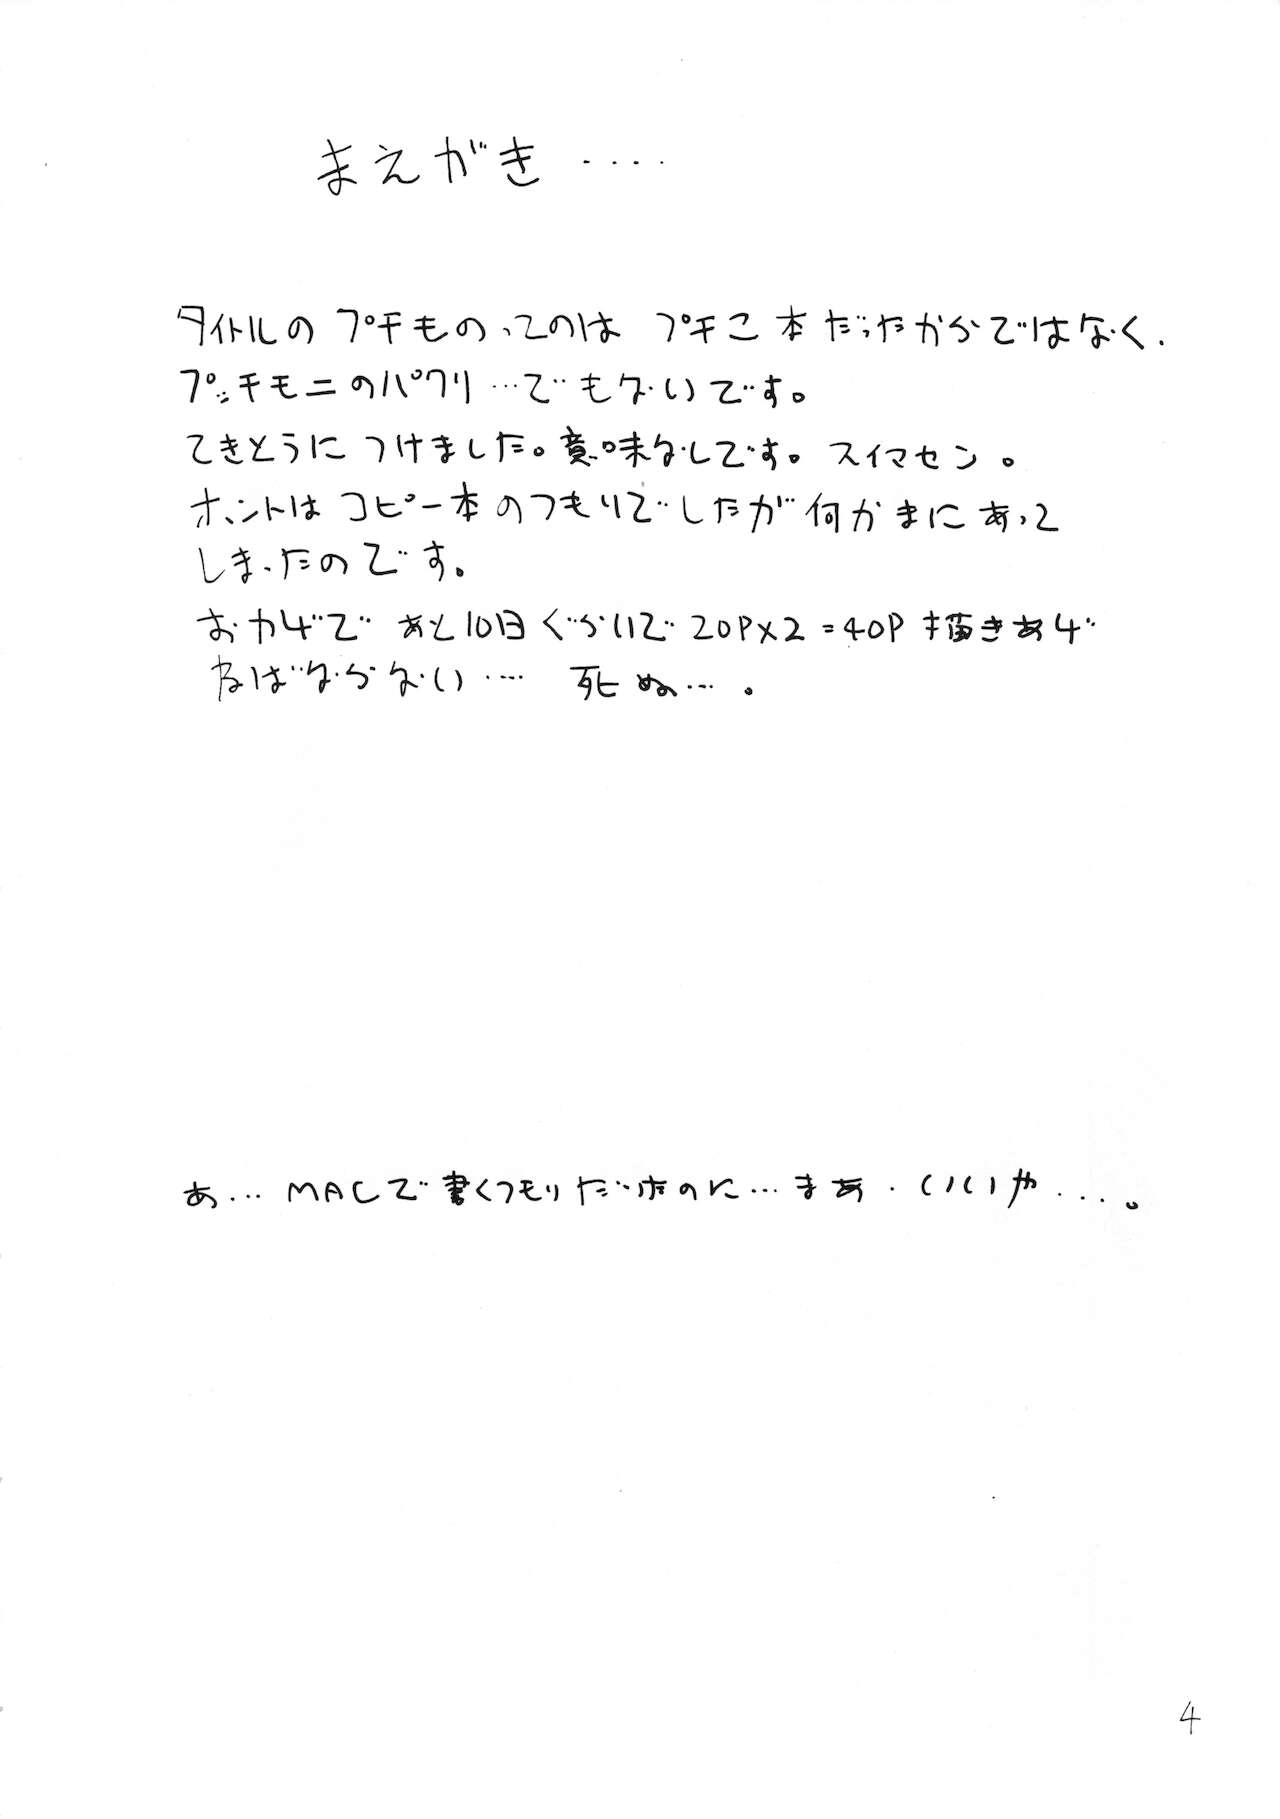 まえがき‥‥
タイトルの プチものってのは プチこ本だったからではなく、
プッチモニのパクリ…でもないです。
てきとうに つけました。意味なしです。スイマセン。
ホントは コピー本のつもりでしたが何かまにあって
しまったのです。
おかげで あと10日ぐらいで 20P×2=40P 描きあげ
ねばならない‥‥ 死ぬ…。
あ… MACで書くつもりだったのに…まあ、いいや‥‥。
4